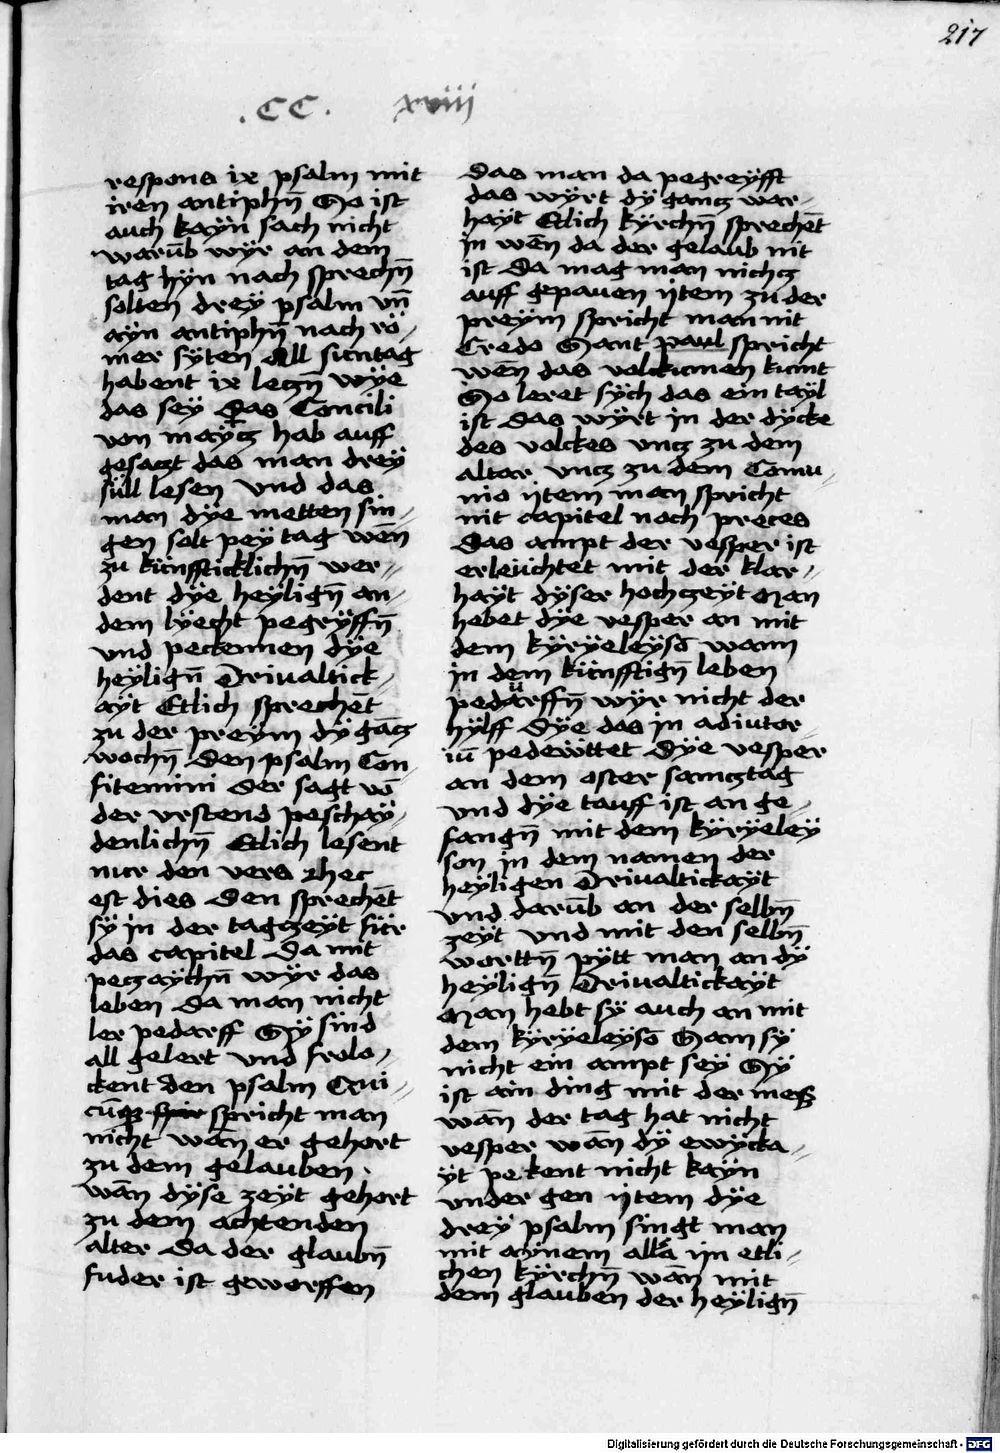 217
.CC. xviii
respons ix psalm mit
iren antiphn̄ So ist
auch kaÿn sach nicht
warūb wÿr an dem
tag hÿn nach sprechn̄
solten dreÿ psalm vn̄
aÿn antiphn̄ nach rö-
mer sÿten All suntag
habent ix leczn̄ wÿe
das seÿ Das Concili
von maÿcz hab auff
gesaczt das man dreÿ
süll lesen vnd das
man dÿe metten sin-
gen solt peÿ tag wen̄
zu künffticklichn̄ wer-
dent dÿe heÿlign̄ an-
dem lÿecht pegrÿffn̄
vnd pekennen dÿe
heÿlign̄ Driualtick-
aÿt Etlich sprechēt
zu der preÿm dÿ gācz
wochn̄ Den psalm Con
fitemini Der sagt vō
der vrstend peschaÿ-
denlichn̄ Etlich lesent
nur den vers Hec
est dies Den sprechēt
sÿ in der tagczeÿt für
das capitel Da mit
peczaÿchn̄ wÿr das
leben Da man nicht
ler pedarff Sÿ sind
all gelert vnd frolo-
ckent Den psalm Qui-
cūqz spricht man
nicht wān er gehort
zu dem gelauben
wān dÿse zeÿt gehort
zu dem achtenden
alter Da der glaubn̄
fuder ist geworffen
Das man da pegreÿfft
das wÿrt dÿ gancz war-
haÿt Etlich kÿrchn̄ sprechēt
in wēn da der gelaub nit
ist Da mag man nichcz
auff gepauen ÿtem zu der
preÿm spricht man nit
Credo Sant paul spricht
wēn das volckumen kumt
So leret sÿch das ein taÿl
ist Das wÿrt in der dÿcke
des volckes vncz zu dem
altar vncz zu dem Comu-
nio ÿtem man spricht
nit capitel noch preces
Das ampt der vesper ist
erleuchtet mit der klar-
haÿt dÿser hochczeÿt Man
hebet dÿe vesper an mit
dem kÿrÿeleÿsō wann
in dem künfftign̄ leben
pedürffn̄ wÿr nicht der
hÿlff Dÿe das in adiutor-
iū pedewttet Dÿe vesper
an dem oster samcztag
vnd dÿe tauff ist an ge-
fangn̄ mit dem kÿrÿeleÿ
son in dem namen der
heÿligen Driualtickaÿt
vnd darūb an der selbn̄
zeÿt vnd mit den selbn̄
worttn̄ pÿtt man an dÿ
heÿlign̄ Driualtickaÿt
Man hebt sÿ auch an mit
dem kÿrÿeleÿsō Sam sÿ
nicht ein ampt seÿ Sÿ
ist ain ding mit der mess
wān der tag hat nicht
vesper wān dÿ ewÿcka-
ÿt pe kent nicht kaÿn
vnder gen ÿtem dÿe
dreÿ psalm singt man
mit aÿnem alla im etli-
chen kÿrchn̄ wān mit
dem glauben der heÿlign̄
Digitalisierung gefördert durch die Deutsche Forschungsgemeinschaft - DFG